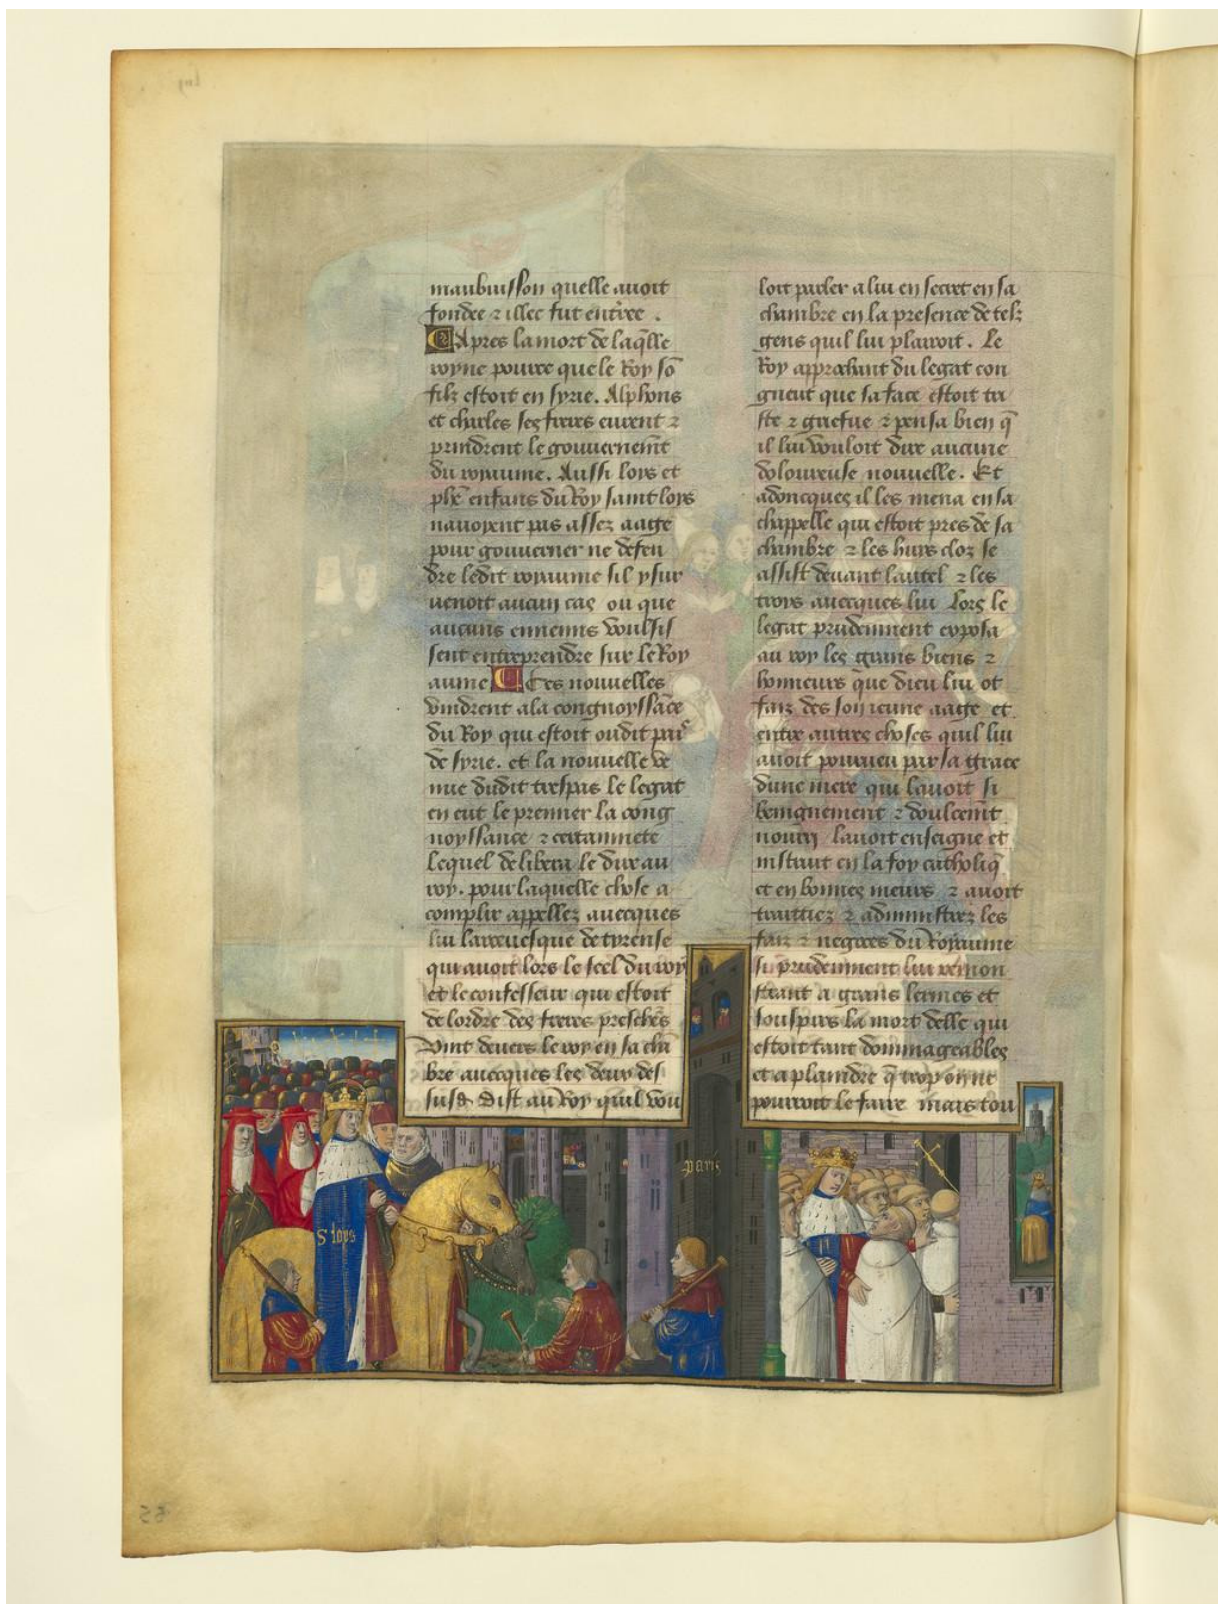 maubuisson quelle auoit
fondee ⁊ illec fut entree .
Apres la mort de laq̄lle
royne pource que le Roy sō
filz estoit en syrie. Alphons
et charles ses freres eurent ⁊
prindrent le gouuernemēt
du royaume. Aussi loys et
phē enfans du Roy saint loys
nauoyent pas assez aage
pour gouuerner ne defen
dre ledit royaume sil y sur
uenoit aucun cas ou que
aucuns ennemis voulsis
sent entreprendre sur le Roy
aume Ces nouuelles
vindrent ala congnoyssāce
du Roy qui estoit oudit pais
de syrie. et la nouuelle ve
nue dudit trespas le legat
en eut le premier la cong
noyssance ⁊ certainnete
Lequel delibera le dire au
roy. pour laquelle chose a
complir appellez auecques
lui larceuesque de tyrense
qui auoit lors le seel du roy
et le confesseur qui estoit
de lordre des freres preschēs
Vint deuers le roy en sa chā
bre auecques les deux des
susd. Dist au Roy quil vou
loit parler a lui en secret en sa
chambre en la presence de telz
gens quil lui plairoit . Le
Roy approchant du legat con
gneut que sa face estoit tri
ste ⁊ griefue ⁊ pensa bien q̄
il lui vouloit dire aucune
doloureuse nouuelle. Et
adoncques il les mena en sa
chappelle qui estoit pres de sa
chambre ⁊ les huys cloz se
assist deuant lautel ⁊ les
troys auecques lui Lors le
legat prudemment exposa
au roy les grans biens ⁊
honneurs que dieu lui ot
faiz des son ieune aage et
entre autres choses quil lui
auoit pourueu par sa grace
dune mere qui lauoit si
benignement ⁊ doulcemēt
nourry lauoit enseigne et
instruit en la foy catholiq̄
et en bonnes meurs ⁊ auoit
traittiez ⁊ administrez les
faiz ⁊ negoces du Royaume
si prudemment lui remon
strant a grans lermes et
souspirs la mort delle qui
estoit tant dommageables
et a plaindre q̄ trop on ne
pourroit le faire mais tou
S loys
paris